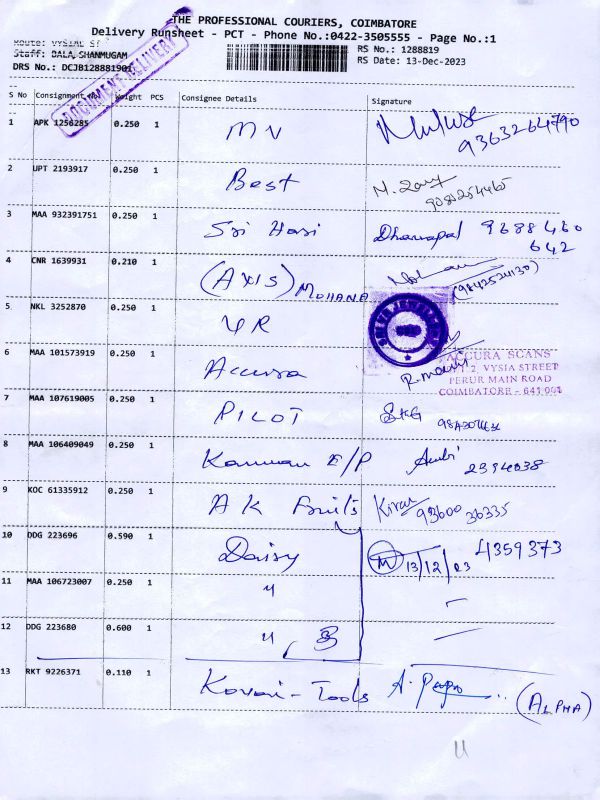 THE PROFESSIONAL COURIERS, COIMBATORE
Delivery Runsheet - PCT - Phone No.:0422-3505555 - Page No.:1
Route: VYSIAL ST
Staff: BALA, SHANMUGAM
RS No.: 1288819
DRS No.: DCJB128881901
RS Date: 13-Dec-2023
DOCUMENT DELIVERY
S No Consignment No Weight PCS Consignee Details Signature
1 APK 1256285 0.250 1 MN 9363264790
2 UPT 2193917 0.250 1 Best
3 MAA 932391751 0.250 1 Sri Hari Dhanapal 9688460
642
4 CNR 1639931 0.210 1 (AXIS) MOHANA (9842524130)
5 NKL 3252870 0.250 1 YR
6 MAA 101573919 0.250 1 Accura
ACCURA SCANS
VYSIA STREET
PERUR MAIN ROAD
COIMBATORE - 641 001
7 MAA 107619005 0.250 1 PILOT
8 MAA 106409049 0.250 1 Kannan E/P 2394038
9 KOC 61335912 0.250 1 A K Fruits Kiran 93600 36335
10 DDG 223696 0.590 1 Daisy M 13/12/23 4359373
11 MAA 106723007 0.250 1 "
12 DDG 223680 0.600 1 " 3
13 RKT 9226371 0.110 1 Kovai-Tools (ALPHA)